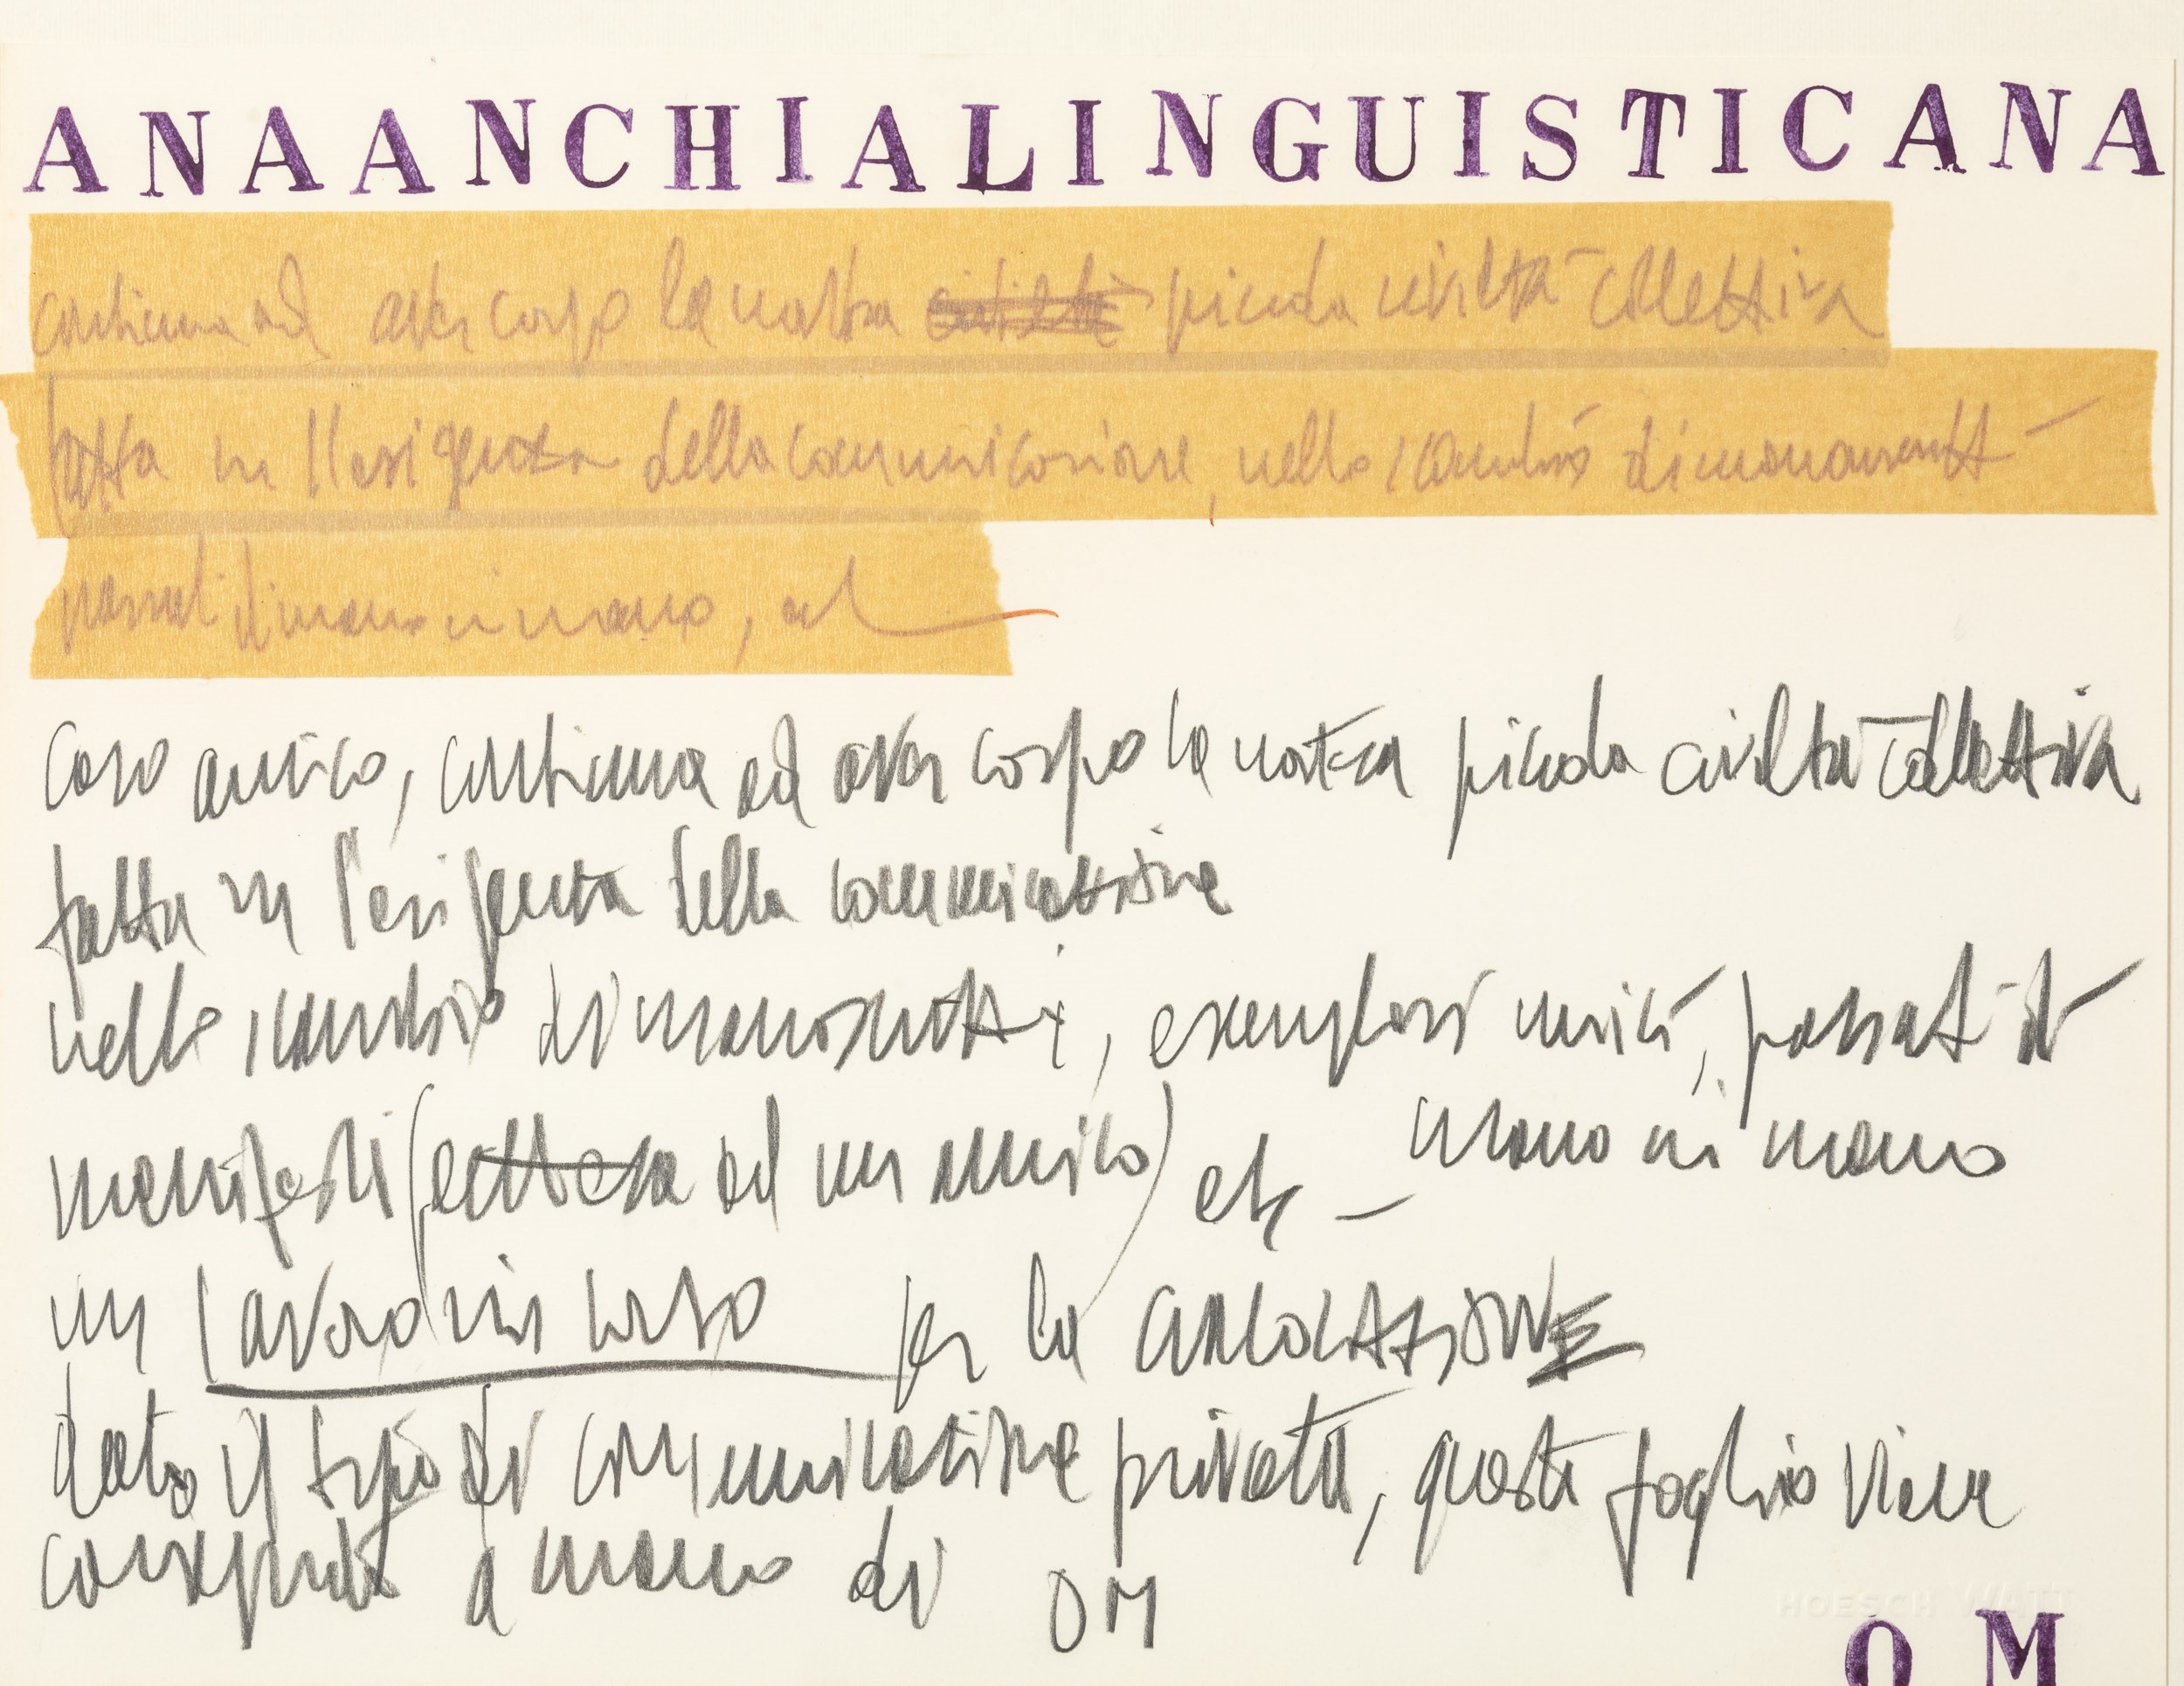 ANAANCHIALINGUISTICANA
continua ad aver corpo la nostra piccola civiltà collettiva
fatta in ll'esigenza della comunicazione, nello scambio di manoscritti
passati di mano in mano, ad
caro amico, continua ad aver corpo la nostra piccola civiltà collettiva
fatta in l'esigenza della comunicazione
nello scambio di manoscritti, esemplari unici, passati di
mano in mano
manifesti (lettera ad un amico) etc –
un lavoro in corso per la CIRCOLAZIONE
dato il tipo di comunicazione privata, questo foglio viene
a mano di OM
HOESCH WATT
OM